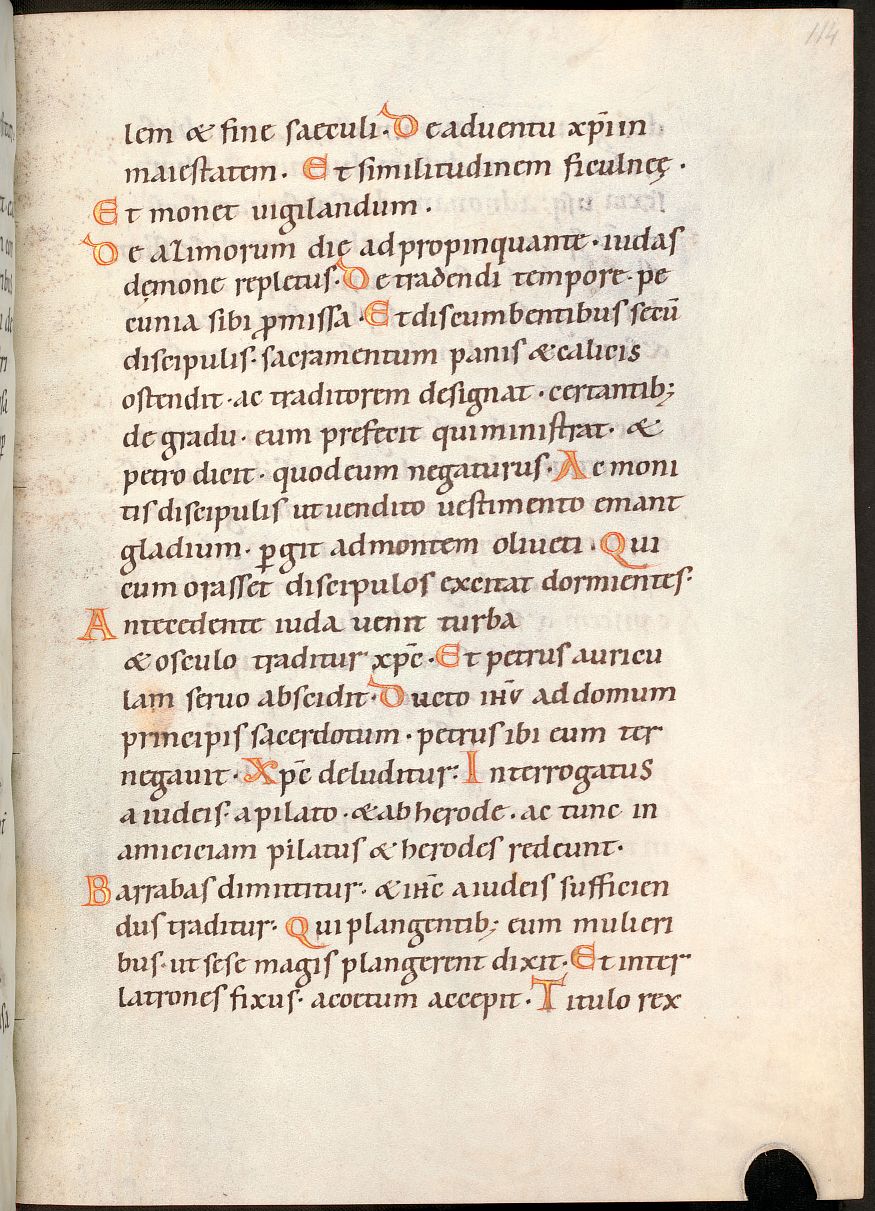 114
lem & fine saeculi · De aduentu xp̄i in
maiestatem · Et similitudinem ficulneę ·
Et monet uigilandum ·
De azimorum die adpropinquante · iudas
dęmone repletus · De tradendi tempore · pe
cunia sibi p̄missa · Et discumbentibus secū
discipulis · sacramentum panis & calicis
ostendit · ac traditorem designat · certantib;
de gradu · eum prefecit qui ministrat · &
petro dicit · quod eum negaturus · Ac moni
tis discipulis ut uendito uestimento emant
gladium · ꝑgit ad montem oliueti · Qui
cum orasset discipulos excitat dormientes ·
Antecedente iuda uenit turba
& osculo traditur xp̄c · Et petrus auricu
lam seruo abscidit · Ducto ih̄u ad domum
principis sacerdotum · petrus ibi eum ter
negauit · Xp̄c deluditur · Interrogatus
a iudeis · a pilato · & ab herode · ac tunc in
amiciciam pilatus & herodes redeunt ·
Barrabas dimittitur · & ih̄c a iudeis sufficien
dus traditur · Qui plangentib; eum mulieri
bus · ut sese magis plangerent dixit · Et inter
latrones fixus · acoetum accepit · Titulo rex